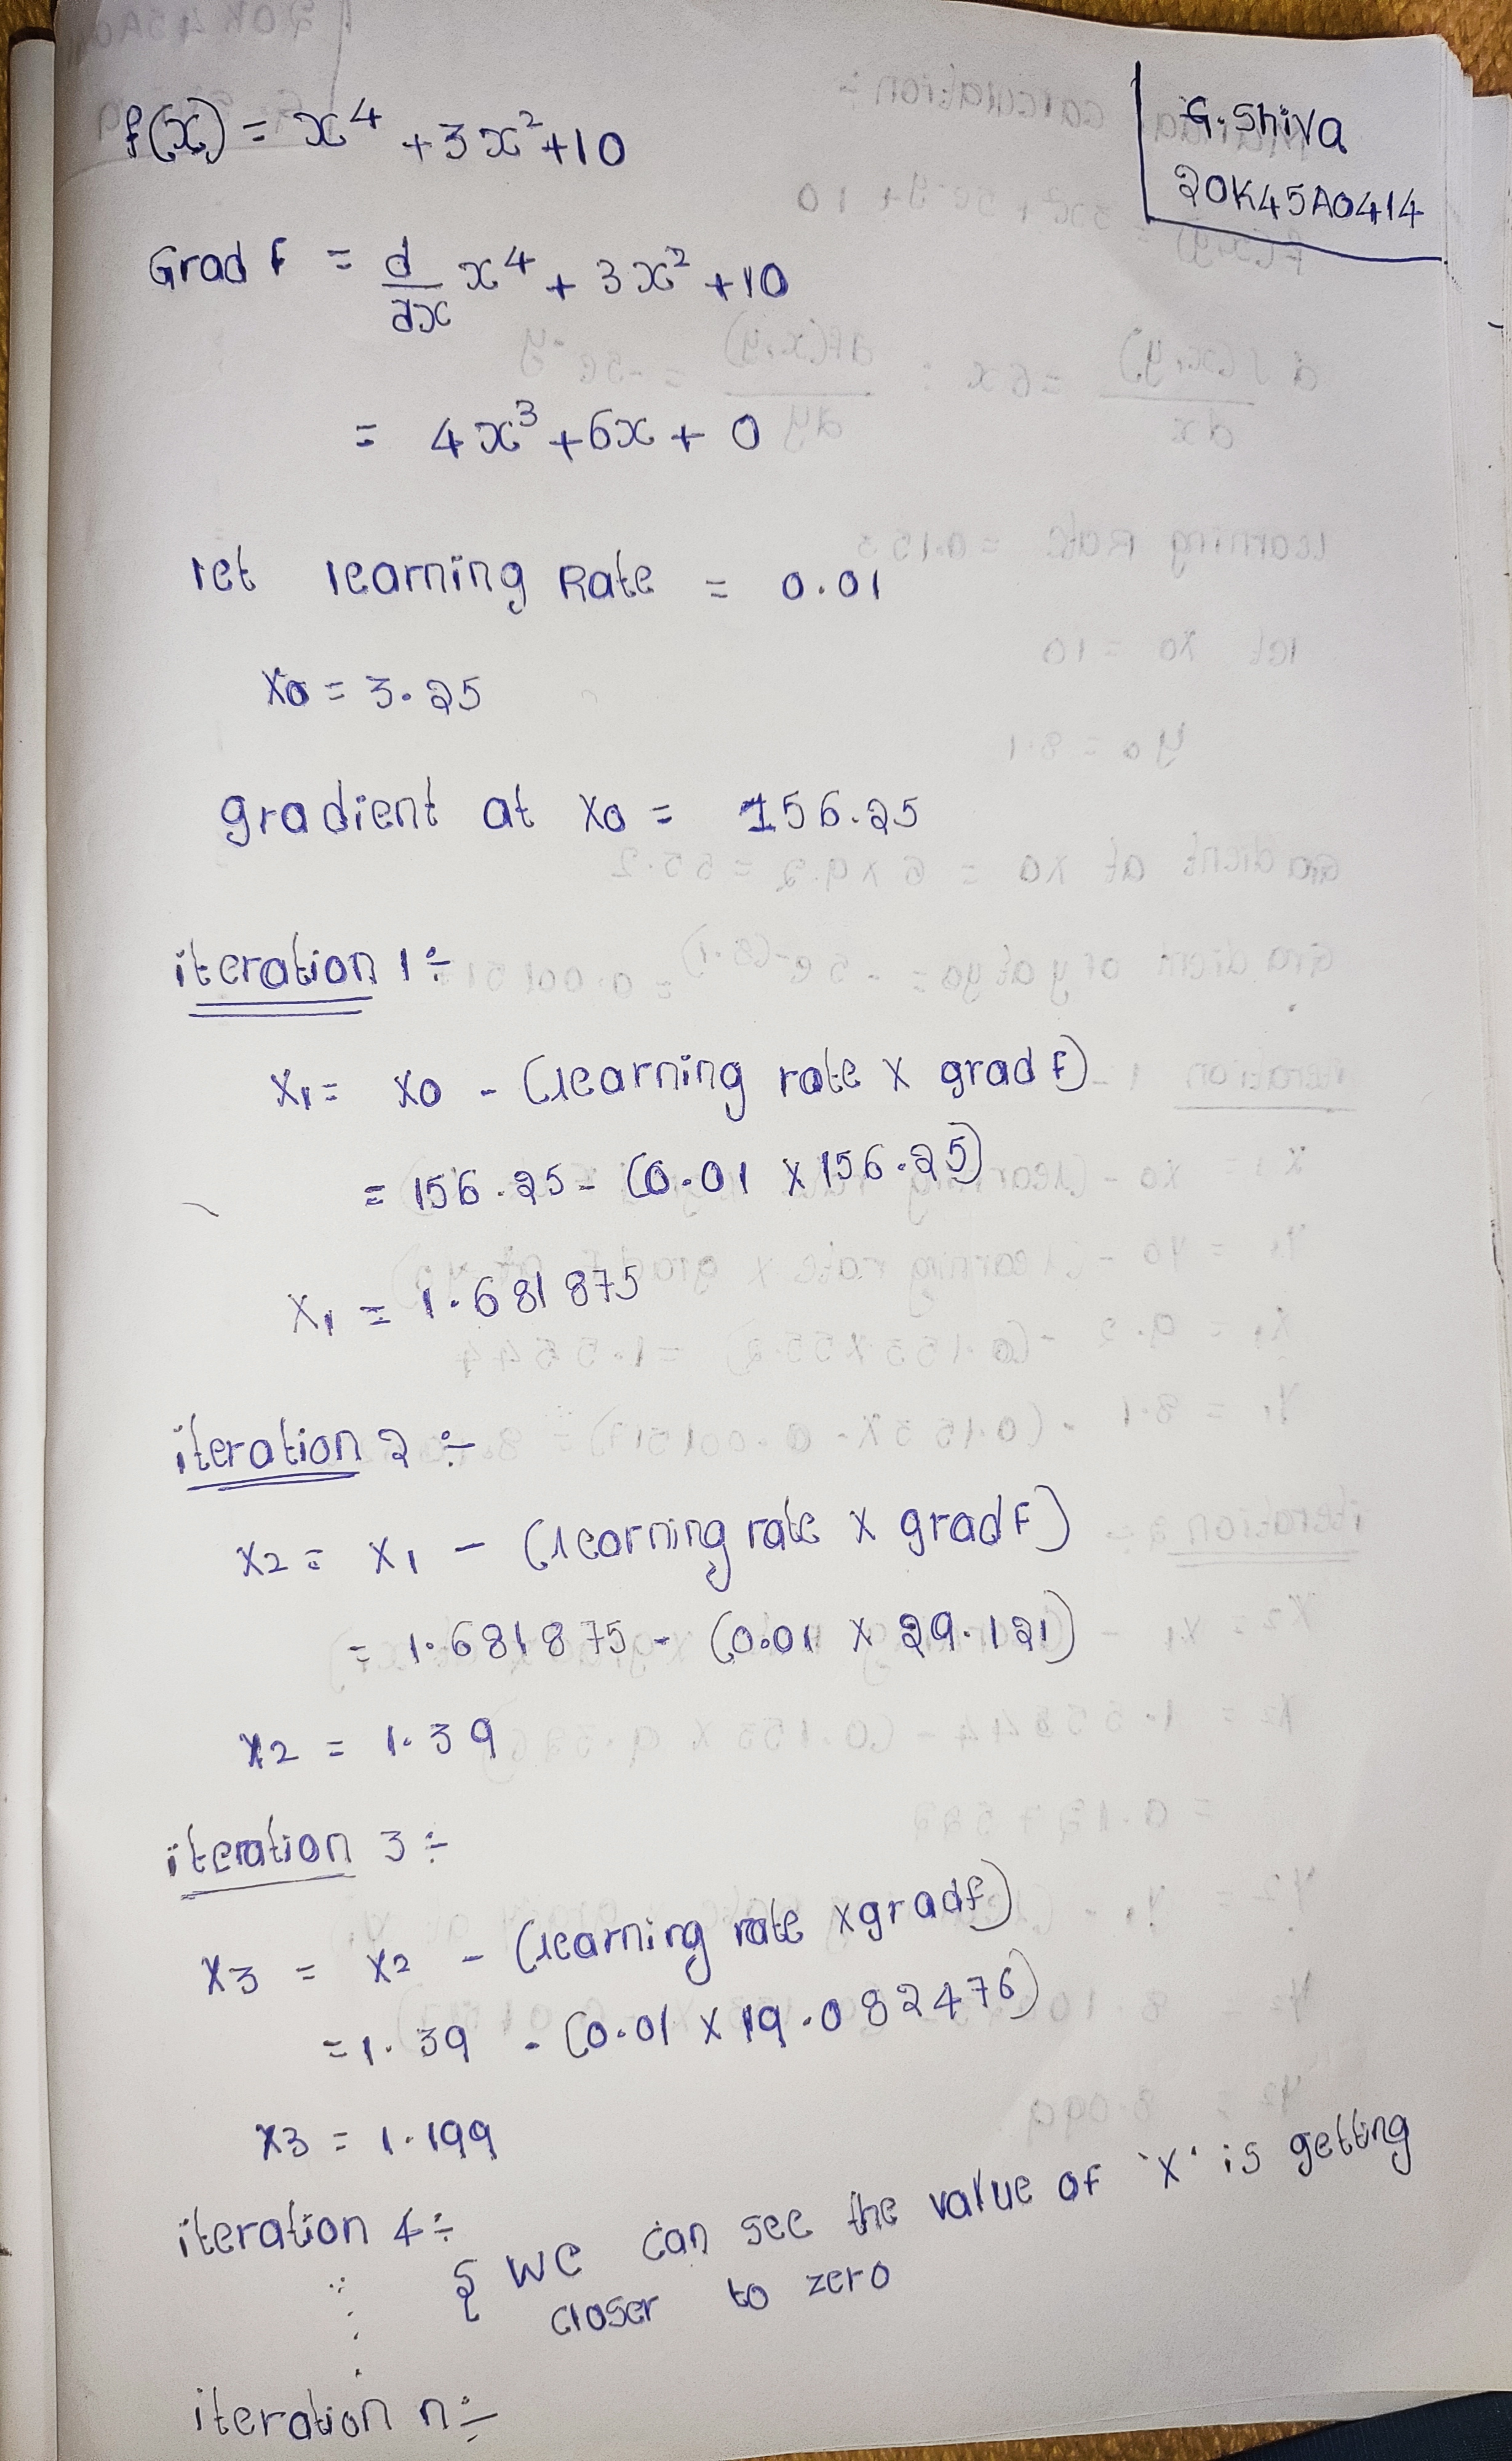 G. Shiva
20K45A0414
f(x) = x⁴ + 3x² + 10
Grad f = d/dx x⁴ + 3x² + 10
= 4x³ + 6x + 0
let learning Rate = 0.01
x0 = 3.25
gradient at x0 = 156.25
iteration 1 ÷
x1 = x0 - (learning rate x grad f)
= 156.25 - (0.01 x 156.25)
x1 = 1.681875
iteration 2 ÷
x2 = x1 - (learning rate x grad f)
= 1.681875 - (0.01 x 29.121)
x2 = 1.39
iteration 3 ÷
x3 = x2 - (learning rate x gradf)
= 1.39 - (0.01 x 19.082476)
x3 = 1.199
iteration 4 ÷
{ we can see the value of 'x' is getting
closer to zero
iteration n ÷